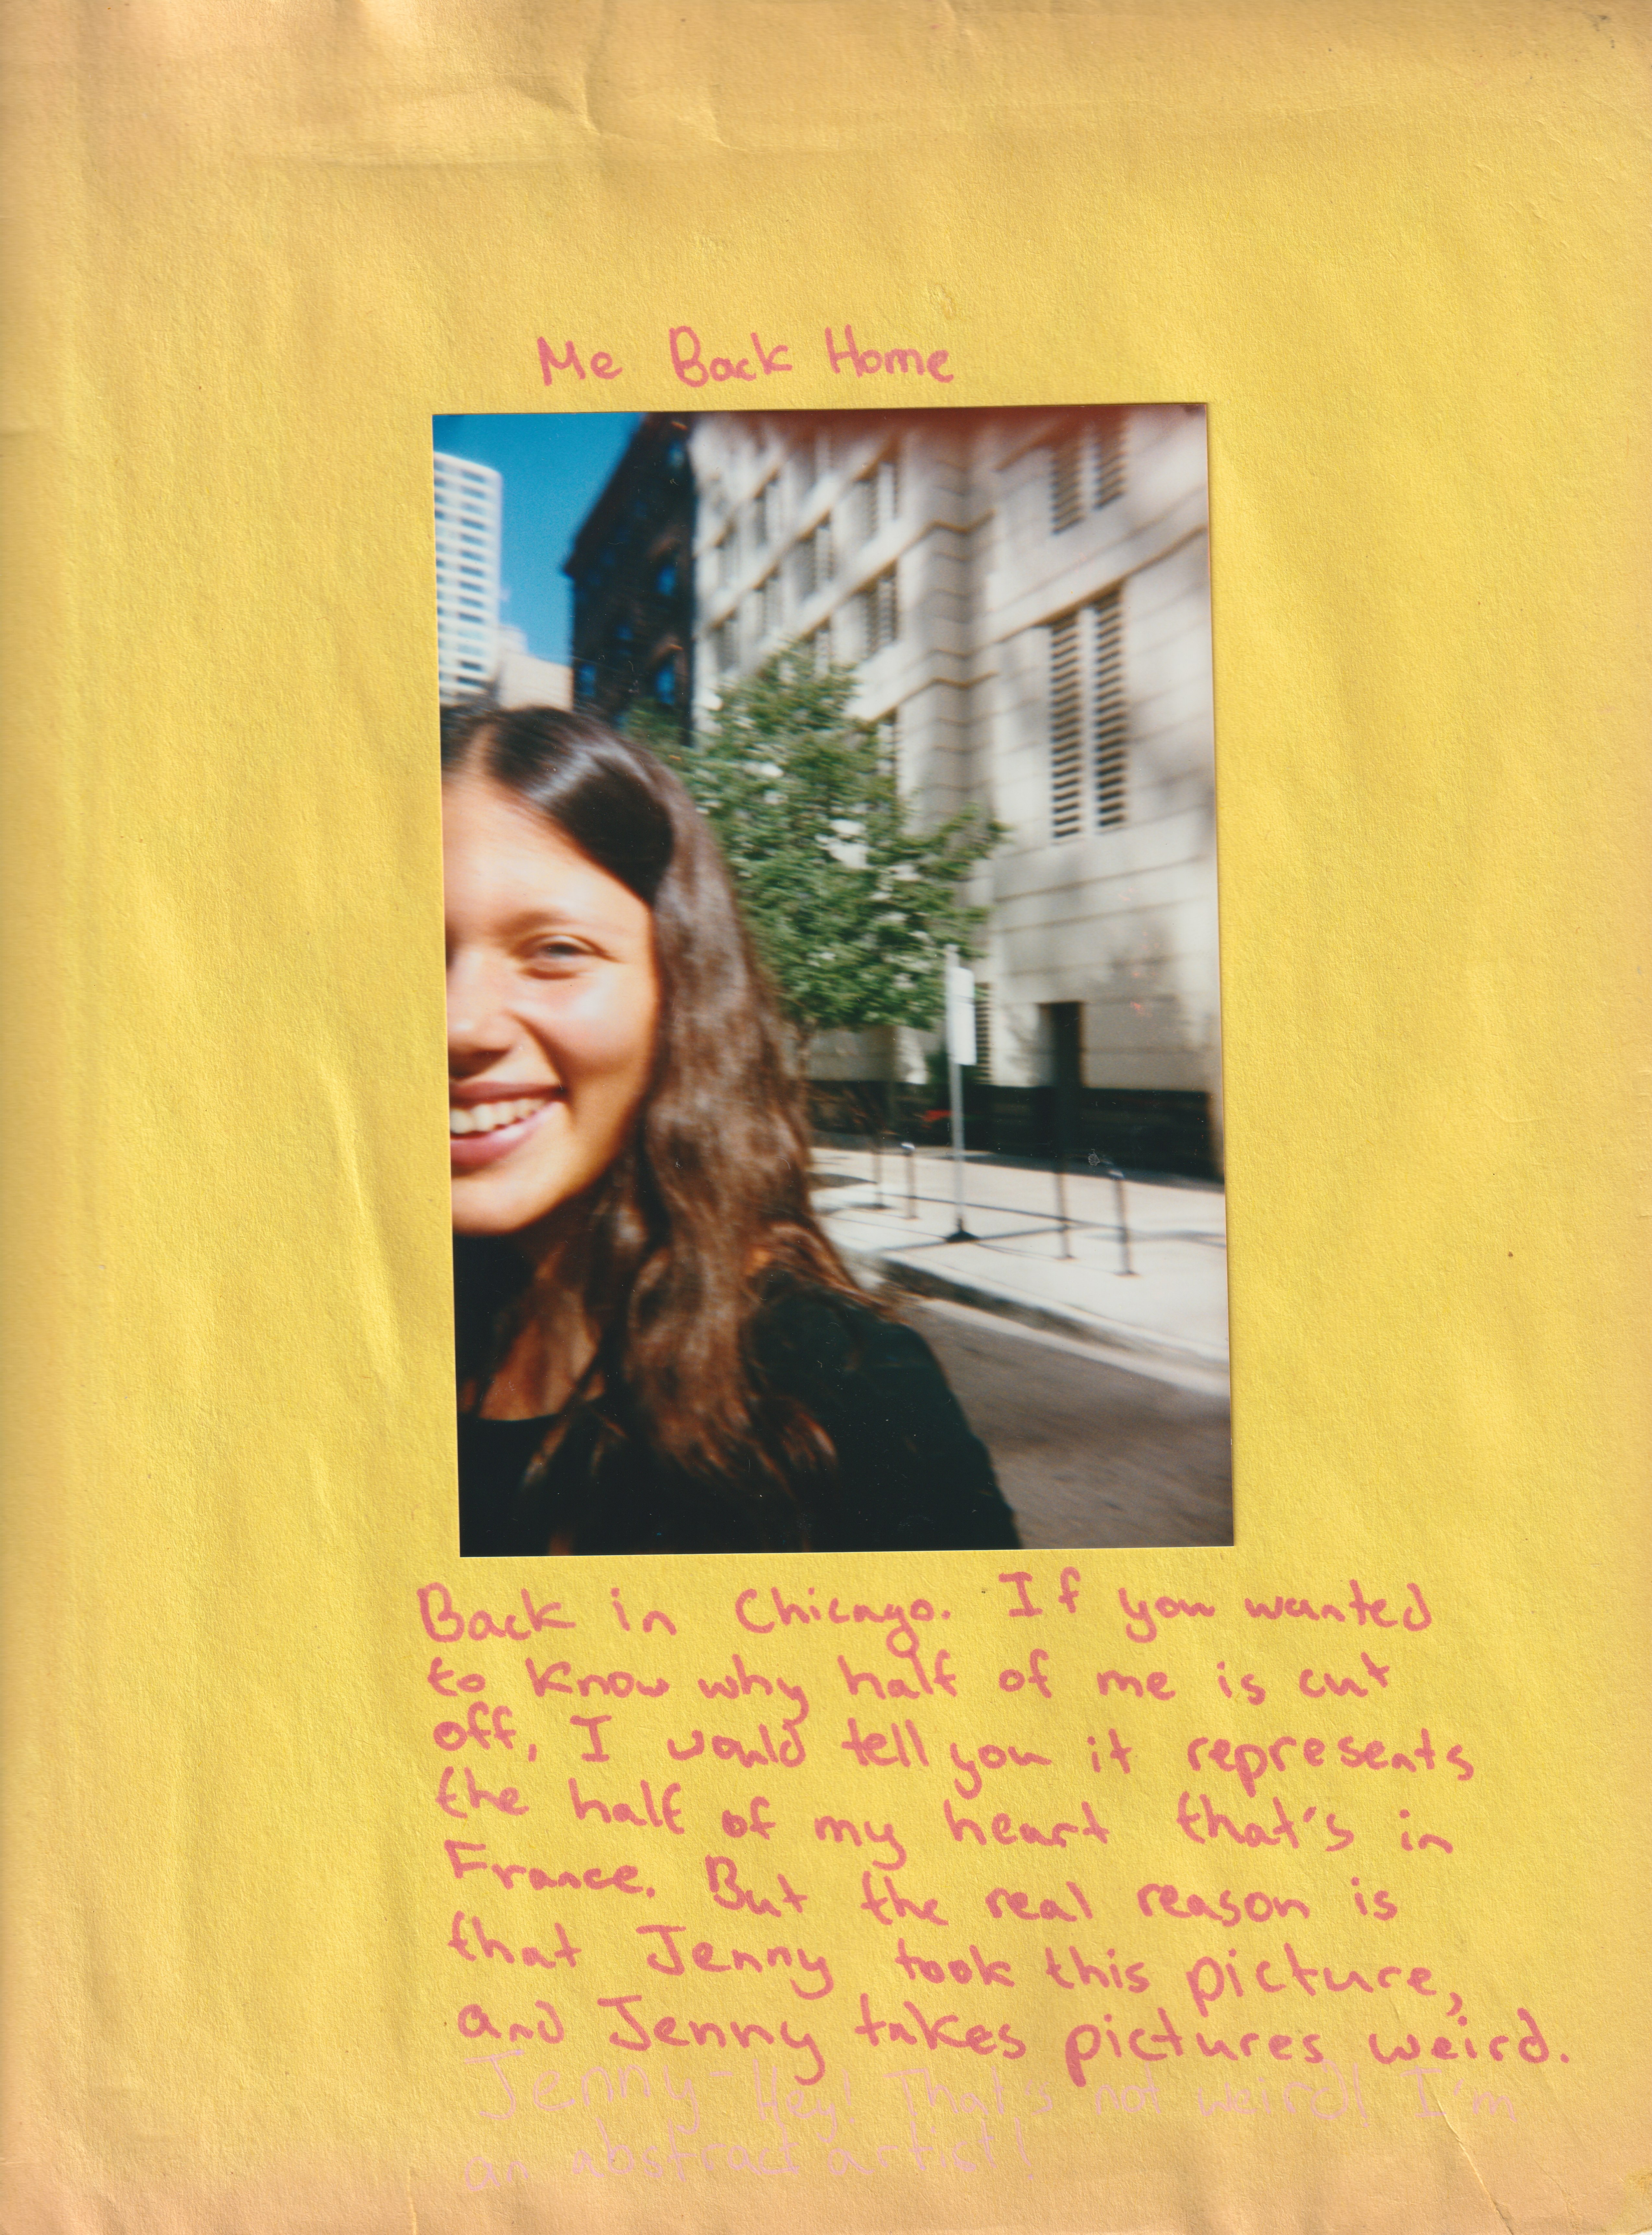 Me Back Home
Back in Chicago. If you wanted
to know why half of me is cut
off, I would tell you it represents
the half of my heart that's in
France. But the real reason is
that Jenny took this picture,
and Jenny takes pictures weird.
Jenny- Hey! That's not weird! I'm
an abstract artist!